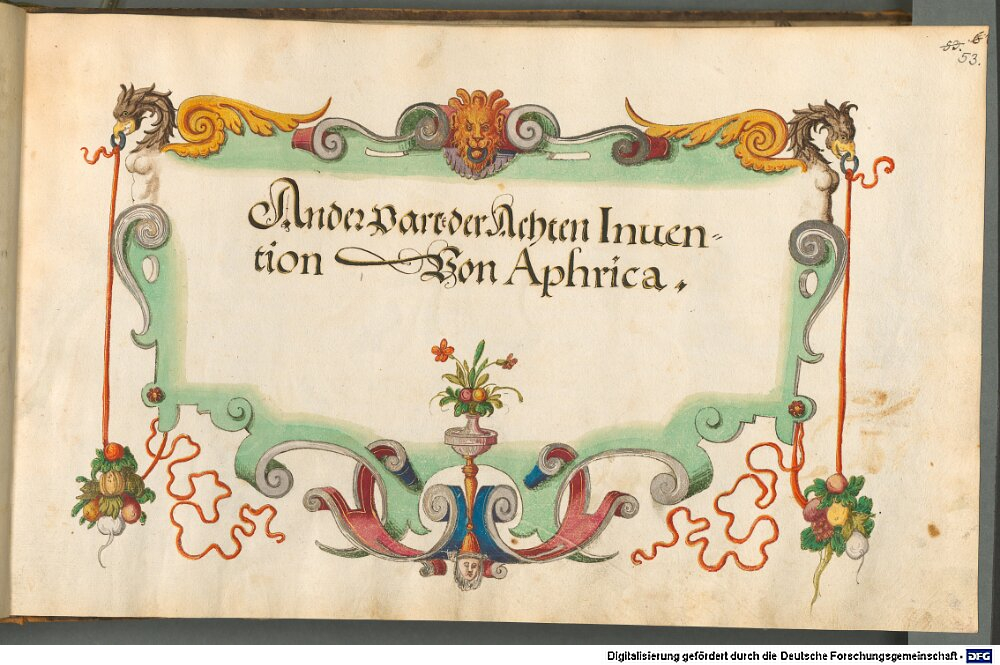 53.
Ander Part der Achten Inuen-
tion Von Aphrica.
Digitalisierung gefördert durch die Deutsche Forschungsgemeinschaft - DFG